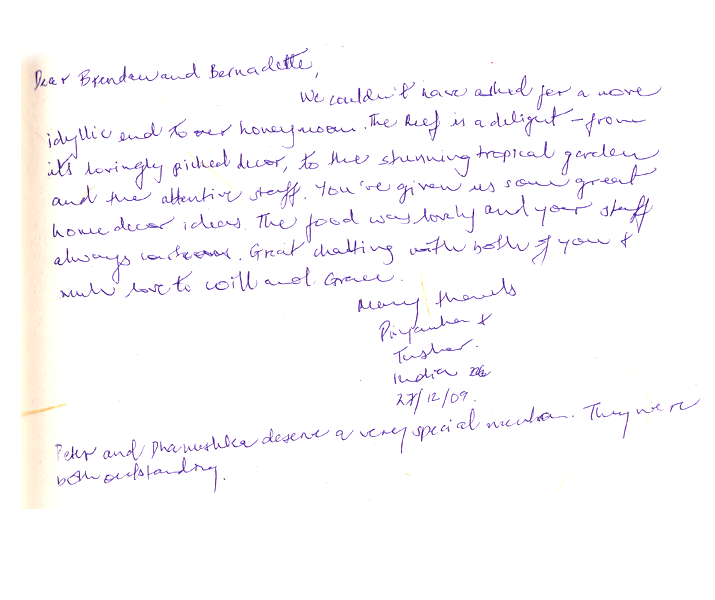 Dear Brendan and Bernadette,
We couldn't have asked for a more
idyllic end to our honeymoon. The Reef is a delight - from
its lovingly picked decor, to the stunning tropical garden
and the attentive staff. You've given us some great
home decor ideas. The food was lovely and your staff
always. Great chatting with both of you &
much love to Will and Grace.
Many thanks
Priyanka &
Tushar.
India
27/12/09.
Peter and Dhanushka deserve a very special mention. They were
both outstanding.